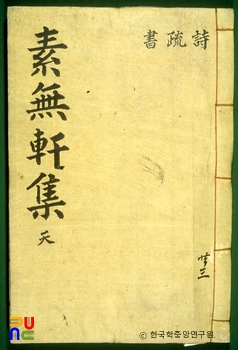 詩疏書
素無軒集 天
共三
© 한국학중앙연구원